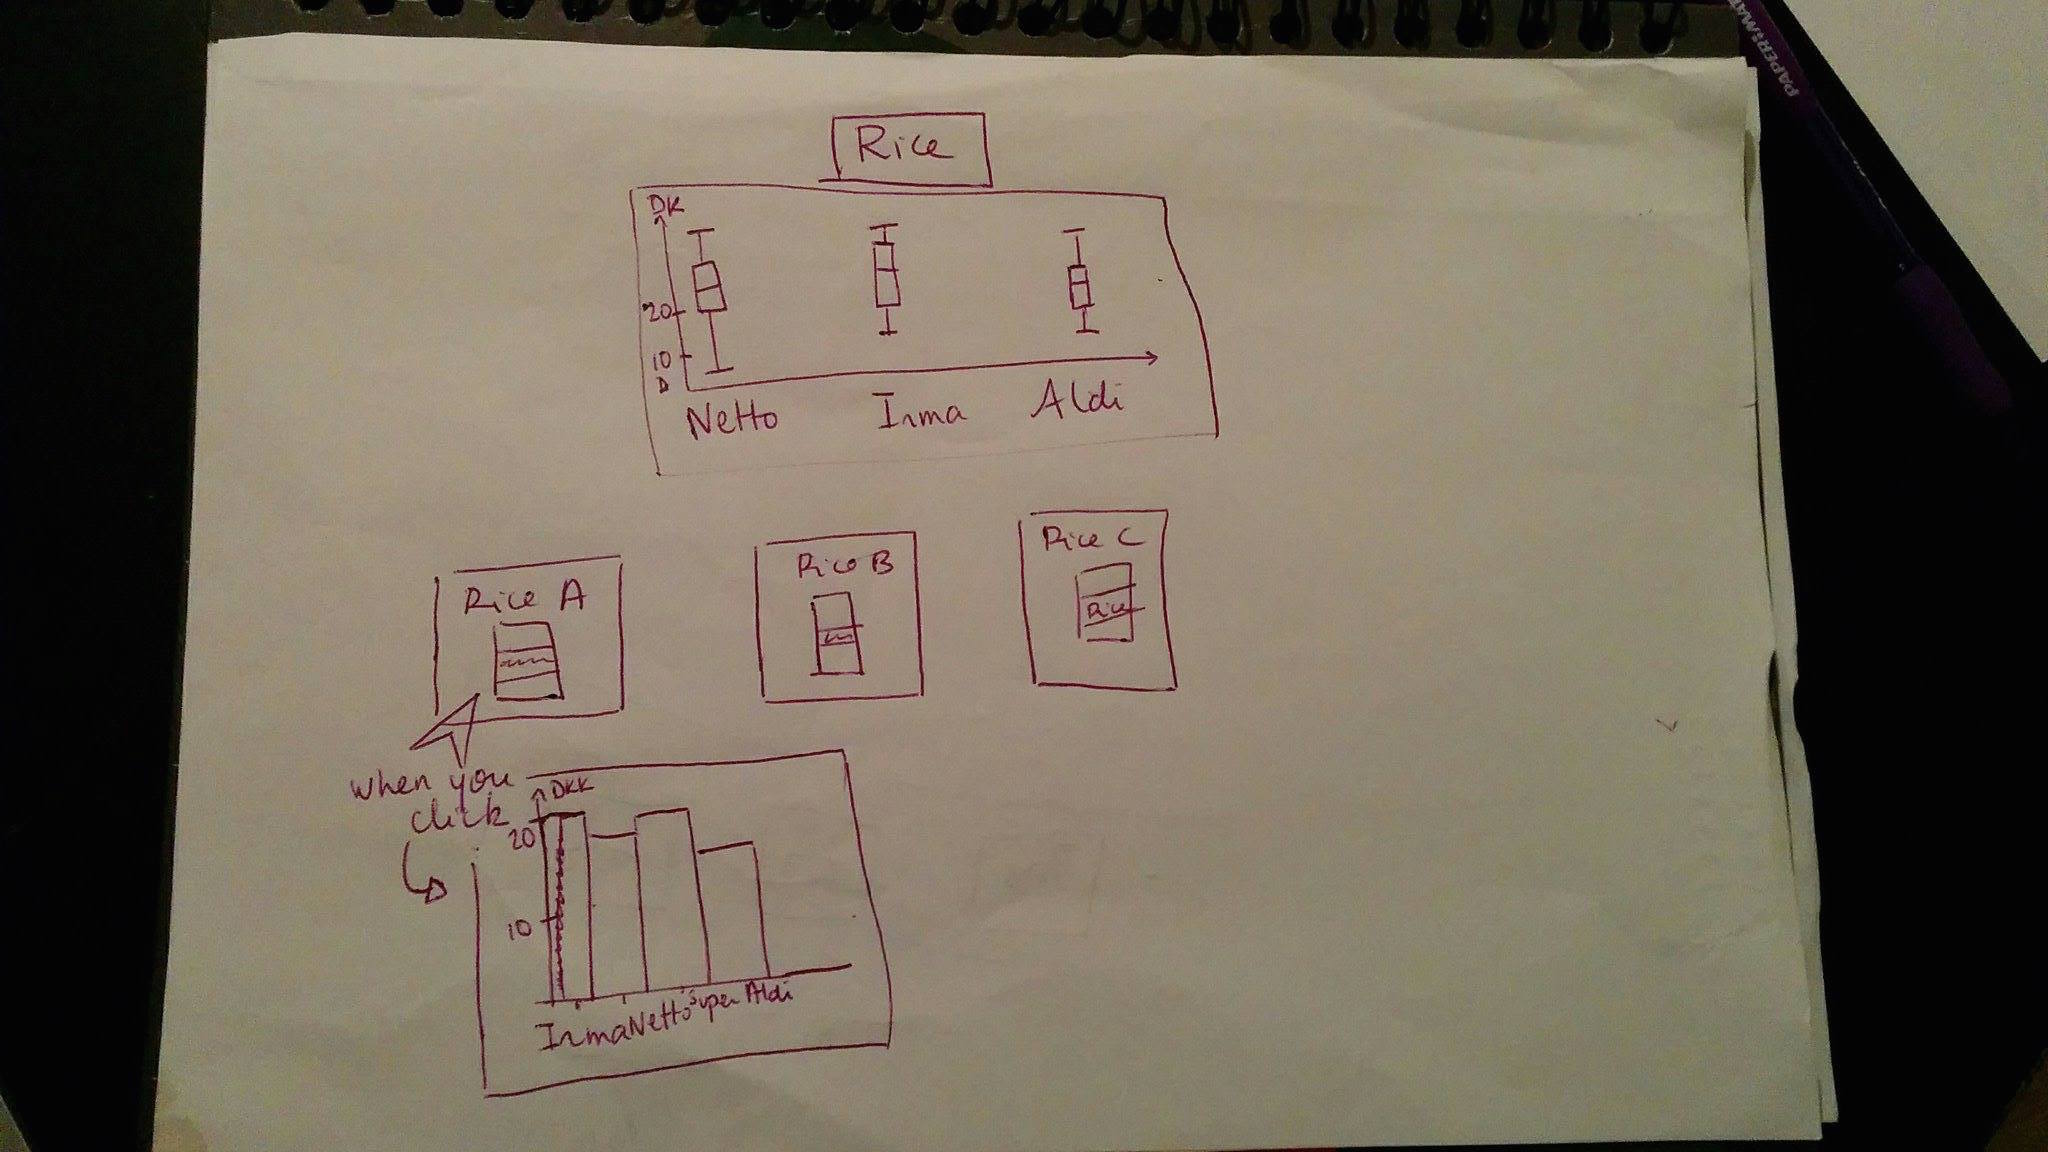 PAPER:MAT
Rice
DK
20
10
Netto Irma Aldi
Rice A
Rice B
Rice C
Rice
when you
click
DKK
20
10
Irma Netto Super Aldi